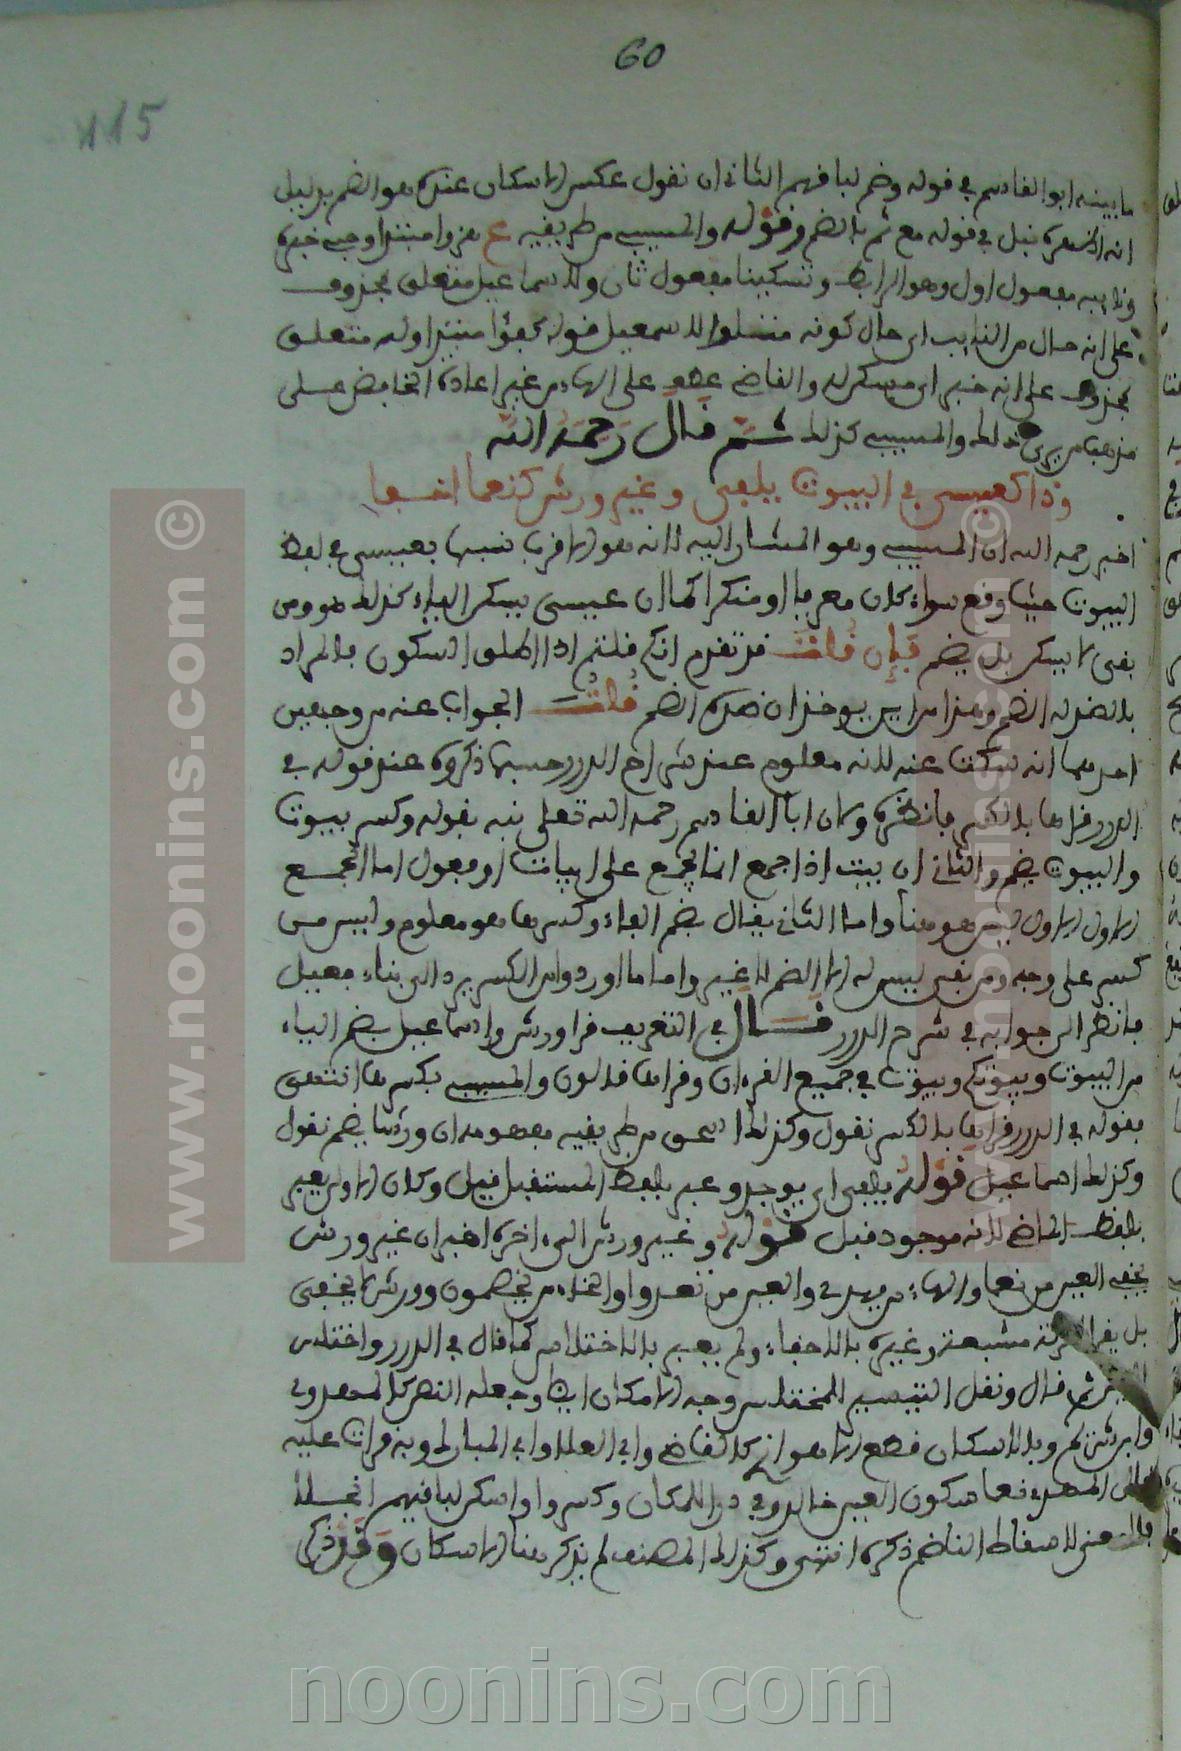 60
115
ما بينه ابو القاسم في قوله وضم لبا فهم الثاني ان نقول عكس الاسكان عنده هو الضم بدليل
انه قبل في قوله مع ثم بالضم وقوله والمسيبي من طريقيه ع هزوا مبتدا وجب خبره
ونايبه مفعول اول وهو الرابط وتسكينا مفعول ثان ولاسماعيل متعلق بمحذوف
على انه حال من النايب اي حال كونه لاسمعيل قوله كفؤا مبتدا وله متعلق
بمحذوف على انه خبر اي مسكر له والقاضي عطف على الهاء من غير اعادة الخافض على
مذهب من يرى ذلك والمسيبي كذلك ثم قال رحمه الله
وذا كعيسى في البيوت يلفى وغير ورش كنعما اخفا
اخبر رحمه الله ان المسيبي وهو المشار اليه لانه هو الاقرب شبيها بعيسى في لفظ
البيوت حيث وقع سواء كان معرفا او منكرا كما ان عيسى يكسر الباء كذلك هو ومن
بقي لا يكسر بل يضم فإن قلت قد تقدم انكم قلتم اذا اطلق السكون فالمراد
بالضد له الضم وهذا من اين يوخذ ان ضده الضم قلت الجواب عنه من وجهين
احدهما انه سكت عنه لانه معلوم عند شراح الدرر حسبما ذكروه عند قوله في
الدرر قراها بالكسر فانظره ولان ابا القاسم رحمه الله تعلى نبه بقوله وكسر بيوت
والبيوت يضم والثاني ان بيت اذا جمع انما يجمع على ابيات او فعول اما الجمع
الاول الاول ليس هو هنا واما الثاني يقال بضم الفاء وكسرها هو معلوم وليس من
كسر على وجه ومن بقي ليس له الا الضم لا غير واما ما اوردوا من الكسر يرد الى بناء فعيل
فانظر الى جوابه في شرح الدرر قال في التعريف قرا ورش واسماعيل بضم الباء
من البيوت وبيوتكم وبيوت في جميع القرءان وقراها قالون والمسيبي بكسرها انتهى
بقوله في الدرر قراها بالكسر نقول وكذلك اسحق من طريقيه مفهومه ان ورشا بضم نقول
وكذلك اسماعيل قوله يلفى اي يوجد وعبر بلفظ المستقبل قيل وكان الاولى يعبر
بلفظ الماضي لانه موجود قبل قوله وغير ورش الى اخره اخبر ان غير ورش
يخفي العين من نعما والهاء من يهدي والعين من تعدوا والخاء من يخصمون وورش لا يخفي
بل يقرا بحركة مشبعة وغيره بالاخفاء ولم يعبر بالاختلاس كما قال في الدرر واختلس
ثم قال ونقل التيسير للمختلس وجه الاسكان ايضا وجعله النص كالمهدوي
وابن شريح وبالاسكان قطع الاهوازي كالقاضي وابي العلا وابي المبارك وبه قرات عليه
نعما سكون العين خالد وفي دوا للمكان وكسروا واسكر لباقيهم انجلا
لاسقاط الناظم ذكره انتهى وكذلك المصنف لم يذكر هنا الاسكان وقد ذكر
www.noonins.com ©
www.noonins.com ©
noonins.com